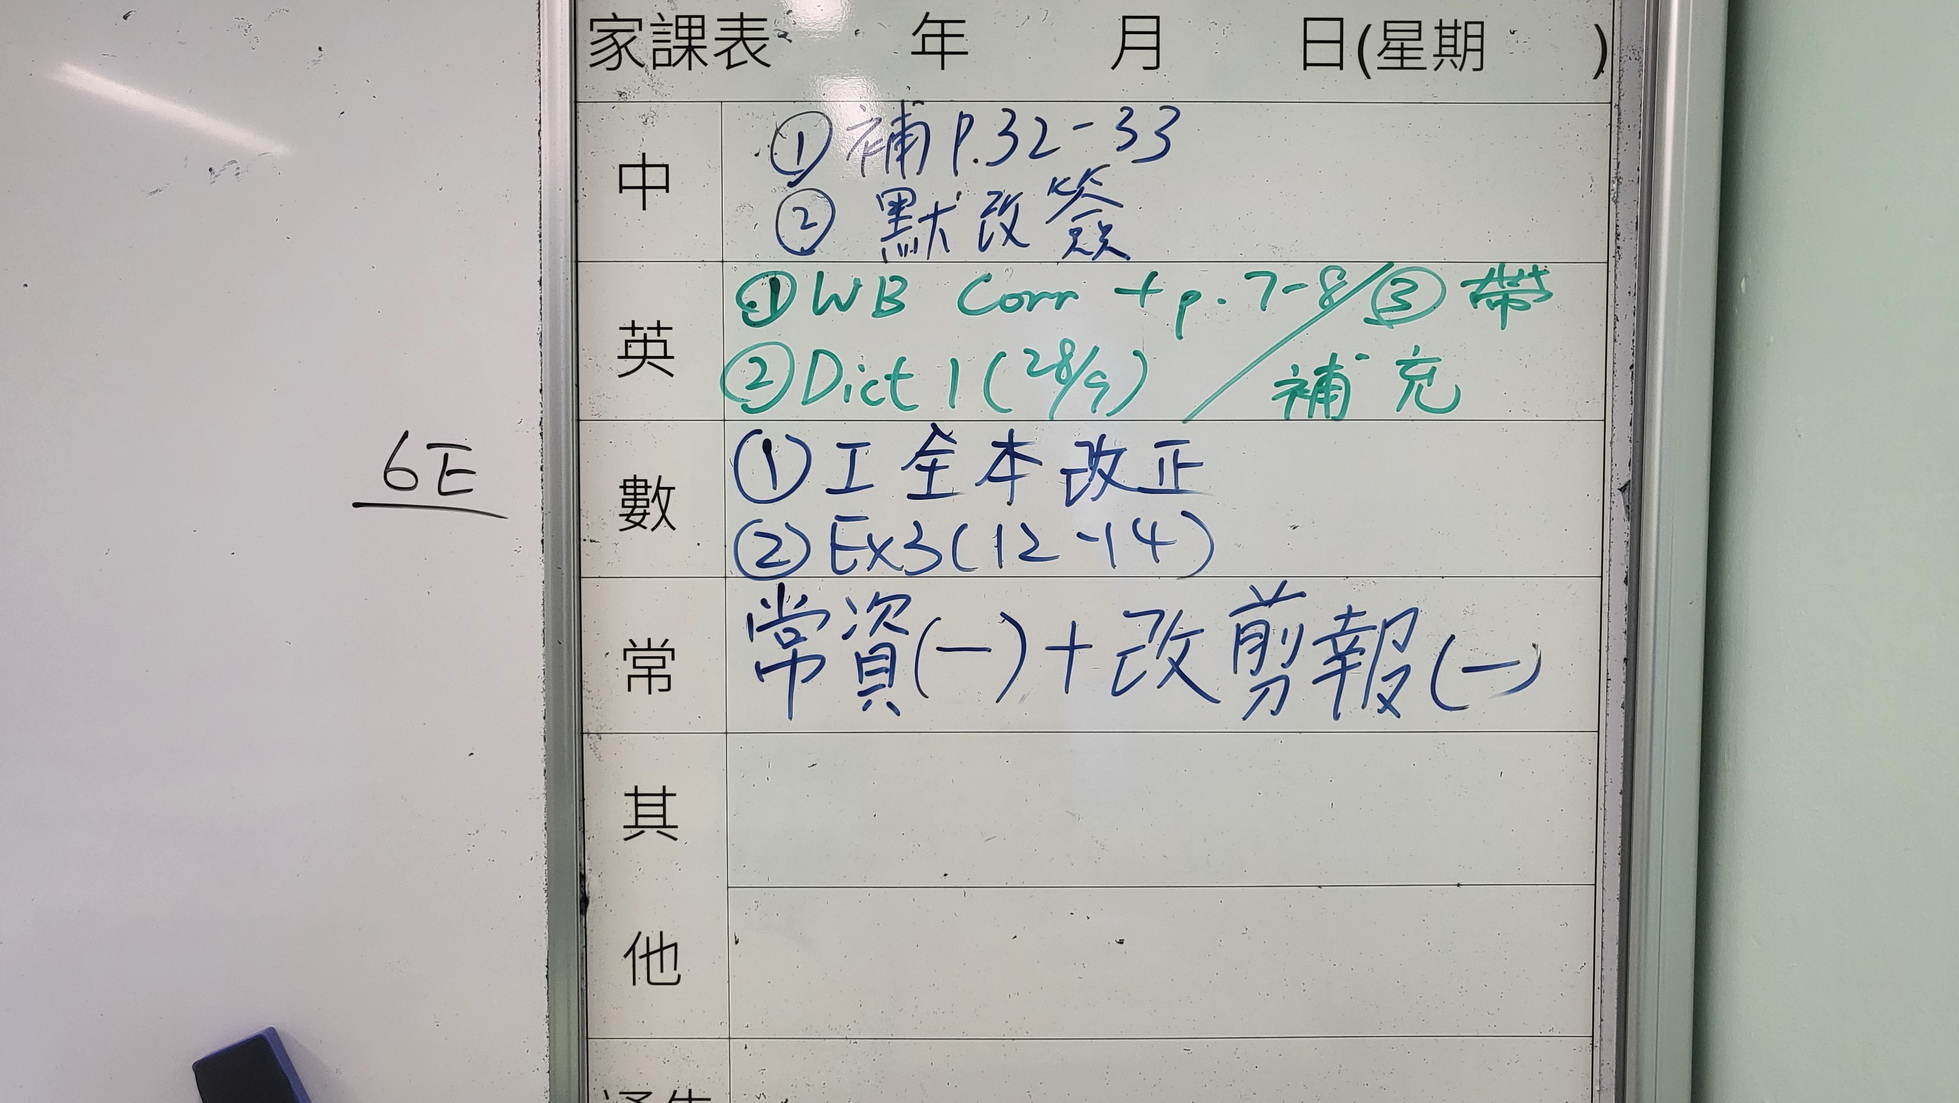 家課表 年 月 日(星期 )
中
① 補 P.32-33
② 默改簽
英
① WB Corr + p.7-8 / ③ 帶
② Dict 1 (28/9) / 補充
6E
數
① 工全本改正
② Ex3(12-14)
常
常資(一)+改剪報(一)
其
他